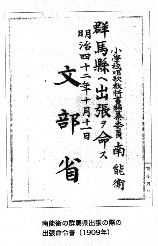 小学校唱歌教科書編纂委員 南能衛
群馬縣ヘ出張ヲ命ス
明治四十二年十月十一日
文部省
南能衛の群馬県出張の際の
出張命令書（1909年）